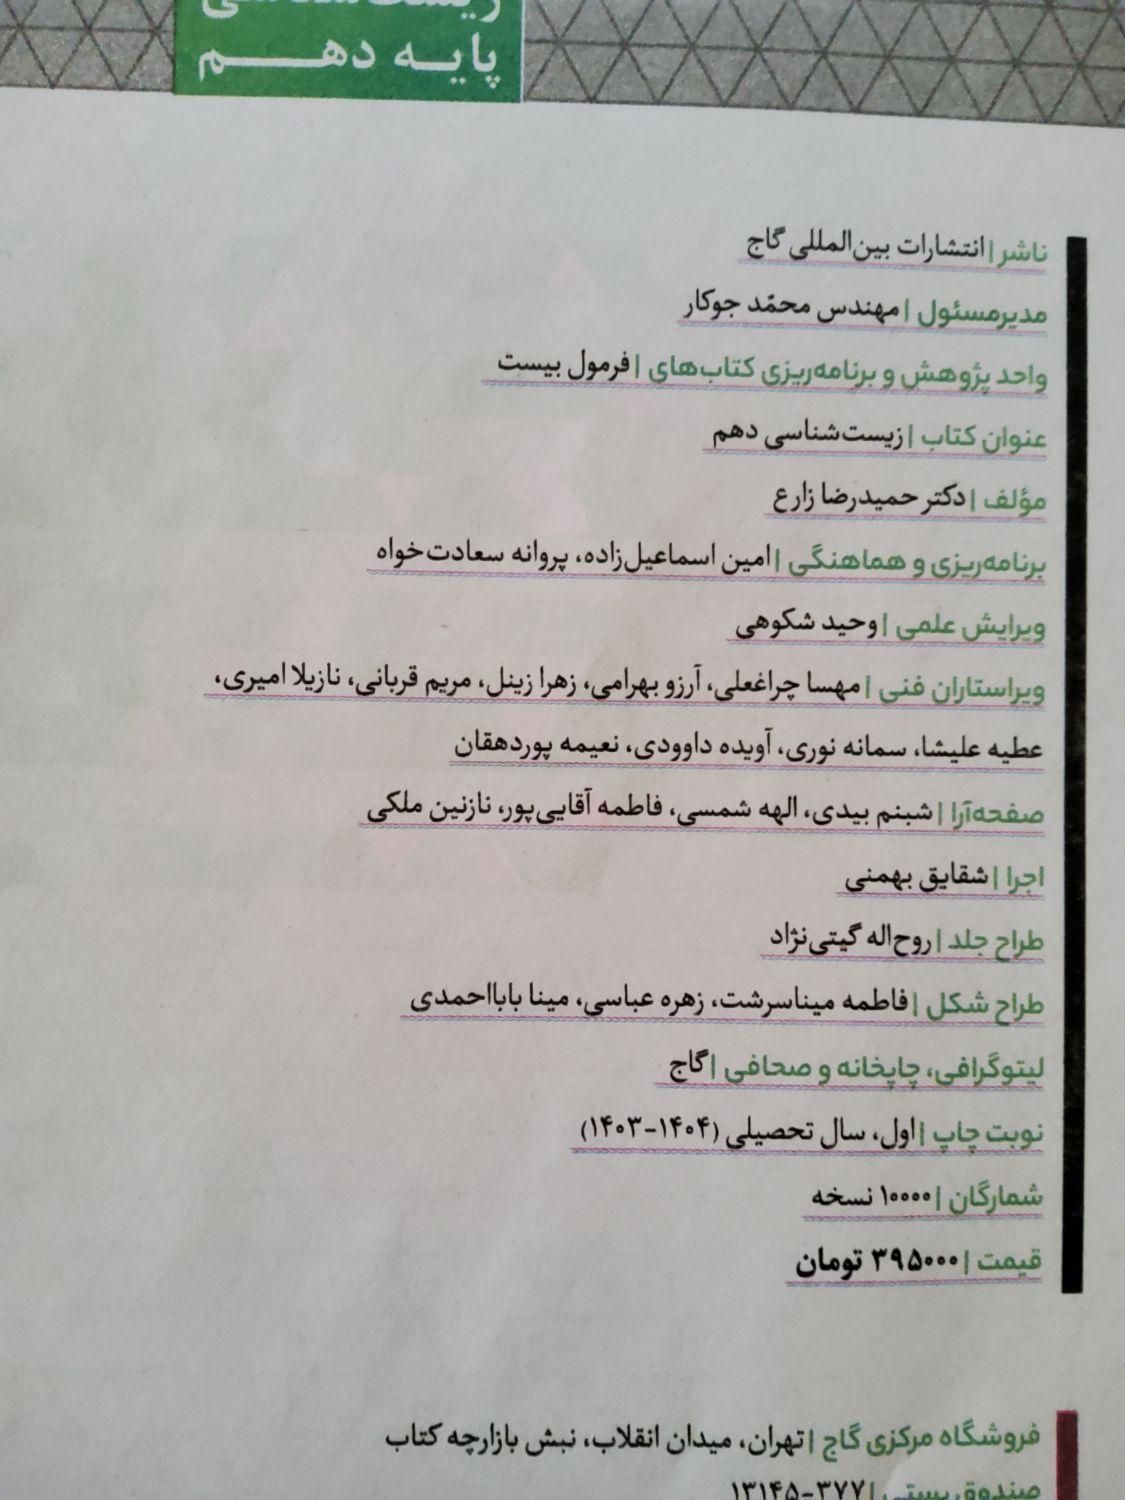 زیست‌شناسی
پایه دهم
ناشر | انتشارات بین‌المللی گاج
مدیرمسئول | مهندس محمّد جوکار
واحد پژوهش و برنامه‌ریزی کتاب‌های | فرمول بیست
عنوان کتاب | زیست‌شناسی دهم
مؤلف | دکتر حمیدرضا زارع
برنامه‌ریزی و هماهنگی | امین اسماعیل‌زاده، پروانه سعادت‌خواه
ویرایش علمی | وحید شکوهی
ویراستاران فنی | مهسا چراغعلی، آرزو بهرامی، زهرا زینل، مریم قربانی، نازیلا امیری،
عطیه علیشا، سمانه نوری، آویده داوودی، نعیمه پوردهقان
صفحه‌آرا | شبنم بیدی، الهه شمسی، فاطمه آقایی‌پور، نازنین ملکی
اجرا | شقایق بهمنی
طراح جلد | روح‌اله گیتی‌نژاد
طراح شکل | فاطمه میناسرشت، زهره عباسی، مینا بابااحمدی
لیتوگرافی، چاپخانه و صحافی | گاج
نوبت چاپ | اول، سال تحصیلی (۱۴۰۴-۱۴۰۳)
شمارگان | ۱۰۰۰۰ نسخه
قیمت | ۳۹۵۰۰۰ تومان
فروشگاه مرکزی گاج | تهران، میدان انقلاب، نبش بازارچه کتاب
صندوق پستی | ۳۷۷-۱۳۱۴۵